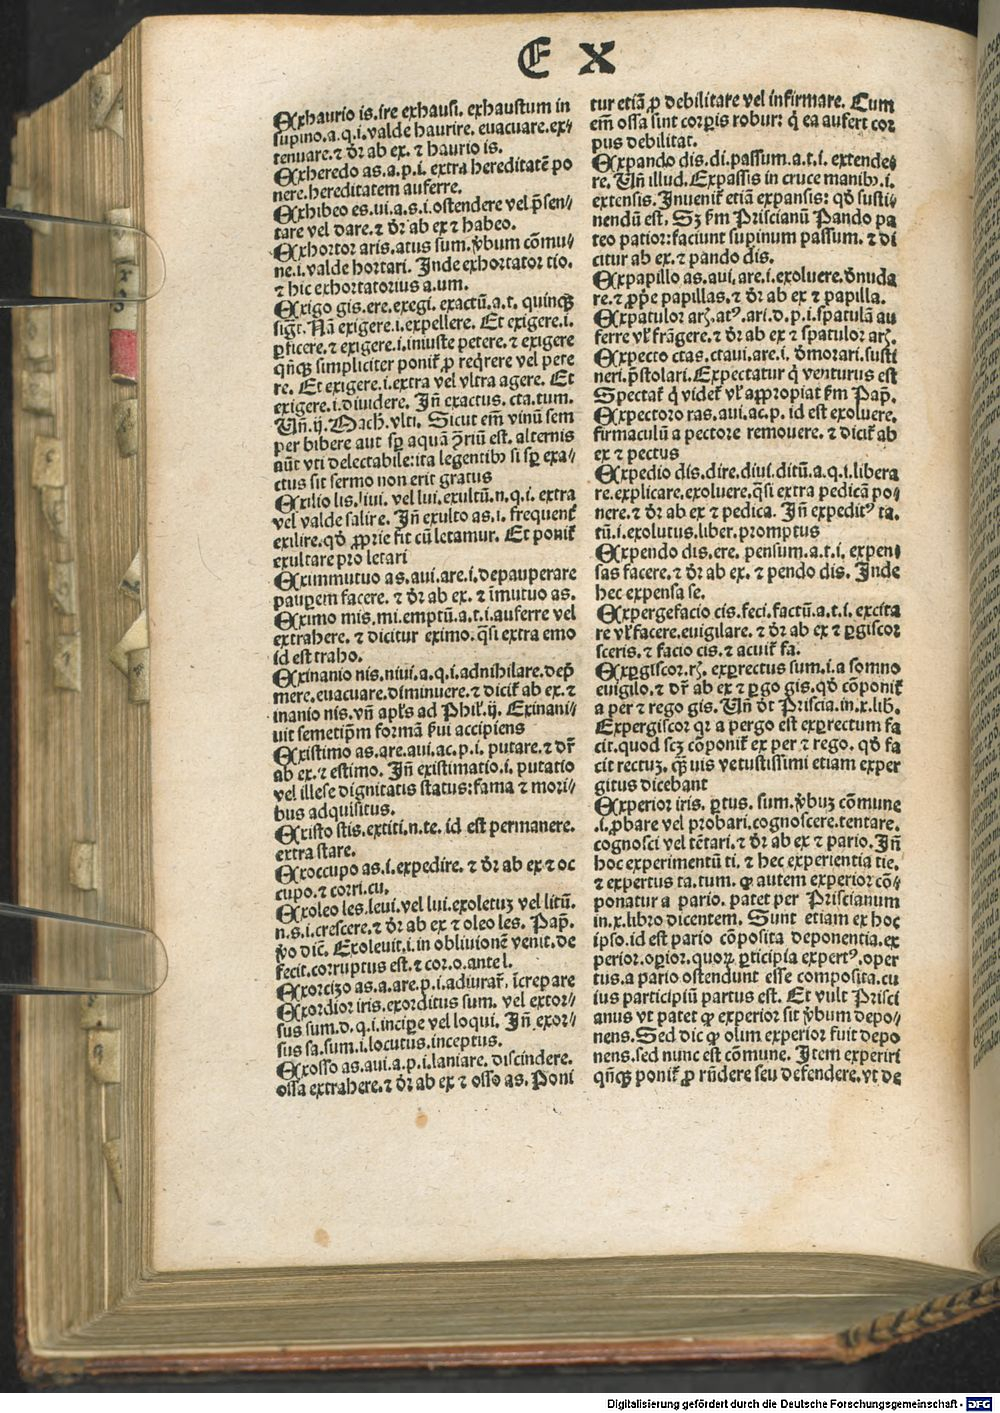 E X
Exhaurio is.ire exhausi. exhaustum in
supino.a.q.i.valde haurire. euacuare.ex⸗
tenuare.⁊ dr̄ ab ex. ⁊ haurio is.
Exheredo as.a.p.i. extra hereditatē po
nere.hereditatem auferre.
Exhibeo es.ui.a.s.i.ostendere vel p̄sen⸗
tare vel dare.⁊ dr̄ ab ex ⁊ habeo.
Exhortor aris.atus sum.v̄bum cōmu⸗
ne.i.valde hortari. Inde exhortator tio.
⁊ hic exhortatorius a.um.
Exigo gis.ere.exegi. exactū.a.t. quinqꝫ
sigt̄. Nā exigere.i.expellere. Et exigere.i.
ꝑficere.⁊ exigere.i.iniuste petere.⁊ exigere
qn̄qꝫ simpliciter ponit̄ ꝓ reqrere vel pete
re. Et exigere.i.extra vel vltra agere. Et
exigere.i.diuidere. Jn̄ exactus.cta.tum.
Vn̄.ij.Mach.vlti. Sicut em̄ vinū sem
per bibere aut sꝑ aquā ꝯrīū est. alternis
aūt vti delectabile:ita legentibꝰ si sꝑ exa⸗
ctus sit sermo non erit gratus
Exilio lis.liui. vel lui.exultū.n.q.i. extra
vel valde salire. Jn̄ exulto as.i. frequent̄
exilire.qd̄ ꝓprie fit cū letamur. Et ponit̄
exultare pro letari
Eximmutuo as.aui.are.i.depauperare
pauꝑem facere. ⁊ dr̄ ab ex. ⁊ īmutuo as.
Eximo mis.mi.emptū.a.t.i.auferre vel
extrahere.⁊ dicitur eximo.qsi extra emo
id est traho.
Exinanio nis.niui.a.q.i.adnihilare.dep̄
mere.euacuare.diminuere.⁊ dicit̄ ab ex.⁊
inanio nis.vn̄ apl̄s ad Phil̄.ij. Exinani⸗
uit semetip̄m formā ẜui accipiens
Existimo as.are.aui.ac.p.i. putare.⁊ dr̄
ab ex.⁊ estimo. Jn̄ existimatio.i. putatio
vel illese dignitatis status:fama ⁊ mori⸗
bus adquisitus.
Existo stis.extiti.n.te. id est permanere.
extra stare.
Exoccupo as.i.expedire.⁊ dr̄ ab ex ⁊ oc
cupo.⁊ corri.cu.
Exoleo les.leui.vel lui.exoletuꝫ vel litū.
n.s.i.crescere.⁊ dr̄ ab ex ⁊ oleo les. Pap̄.
v̄o dic̄. Exoleuit.i.in obliuionē venit.de
fecit.corruptus est.⁊ cor.o.ante l.
Exorcizo as.a.are.p.i.adiurar̄. īcrepare
Exordior iris.exorditus sum. vel extor⸗
sus sum.d.q.i.inciꝑe vel loqui. Jn̄ exor⸗
sus sa.sum.i.locutus.inceptus.
Exosso as.aui.a.p.i.laniare. discindere.
ossa extrahere.⁊ dr̄ ab ex ⁊ osso as. Poni
tur etiā ꝓ debilitare vel infirmare. Cum
em̄ ossa sint corꝑis robur: q̄ ea aufert cor
pus debilitat.
Expando dis.di.passum.a.t.i. extende⸗
re. Vn̄ illud. Expassis in cruce manibꝰ.i.
extensis. Inuenit̄ etiā expansis: qd̄ susti⸗
nendū est. Sꝫ ẜm Priscianū Pando pa
teo patior:faciunt supinum passum. ⁊ di
citur ab ex.⁊ pando dis.
Expapillo as.aui.are.i.exoluere.dnuda
re.⁊ ꝓp̄e papillas.⁊ dr̄ ab ex ⁊ papilla.
Expatulor arꝭ.atꝰ.ari.d.p.i.spatulā au
ferre vl̄ frāgere.⁊ dr̄ ab ex ⁊ spatulor arꝭ.
Expecto ctas.ctaui.are.i. dmorari.susti
neri.p̄stolari.Expectatur q̄ venturus est
Spectat̄ q̄ videt̄ vl̄ appropiat ẜm Pap̄.
Expectoro ras.aui.ac.p. id est exoluere.
firmaculū a pectore remouere.⁊ dicit̄ ab
ex ⁊ pectus
Expedio dis.dire.diui.ditū.a.q.i.libera
re.explicare.exoluere.qsi extra pedicā po⸗
nere.⁊ dr̄ ab ex ⁊ pedica. Jn̄ expeditꝰ ta.
tū.i.exolutus.liber.promptus
Expendo dis.ere. pensum.a.t.i. expen⸗
sas facere.⁊ dr̄ ab ex. ⁊ pendo dis. Inde
hec expensa se.
Expergefacio cis.feci.factū.a.t.i.excita
re vl̄ facere.euigilare. ⁊ dr̄ ab ex ⁊ ꝑgiscor
sceris.⁊ facio cis.⁊ acuit̄ fa.
Exꝑgiscor.rꝭ. exꝑrectus sum.i.a somno
euigilo.⁊ dr̄ ab ex ⁊ ꝑgo gis.qd̄ cōponit̄
a per ⁊ rego gis. Vn̄ dt̄ Priscia.in.x.lib.
Expergiscor qr a pergo est exꝑrectum fa
cit.quod scꝫ cōponit̄ ex per ⁊ rego. qd̄ fa
cit rectuꝫ. qꝫuis vetustissimi etiam exper
gitus dicebant
Experior iris. ꝑtus. sum.v̄buꝫ cōmune
.i.ꝓbare vel probari.cognoscere.tentare.
cognosci vel tētari.⁊ dr̄ ab ex ⁊ pario. Jn̄
hoc experimentū ti.⁊ hec experientia tie.
⁊ expertus ta.tum. ꝙ autem experior cō⸗
ponatur a pario. patet per Priscianum
in.x.libro dicentem. Sunt etiam ex hoc
ipso.id est pario cōposita deponentia.ex
perior.oꝑior.quoꝝ ꝑticipia expertꝰ.oper
tus.a pario ostendunt esse composita.cu
ius participiū partus est. Et vult Prisci
anus vt patet ꝙ experior sit v̄bum depo⸗
nens.Sed dic ꝙ olim experior fuit depo
nens.sed nunc est cōmune. Item experiri
qn̄qꝫ ponit̄ ꝓ rn̄dere seu defendere.vt de
Digitalisierung gefördert durch die Deutsche Forschungsgemeinschaft - DFG